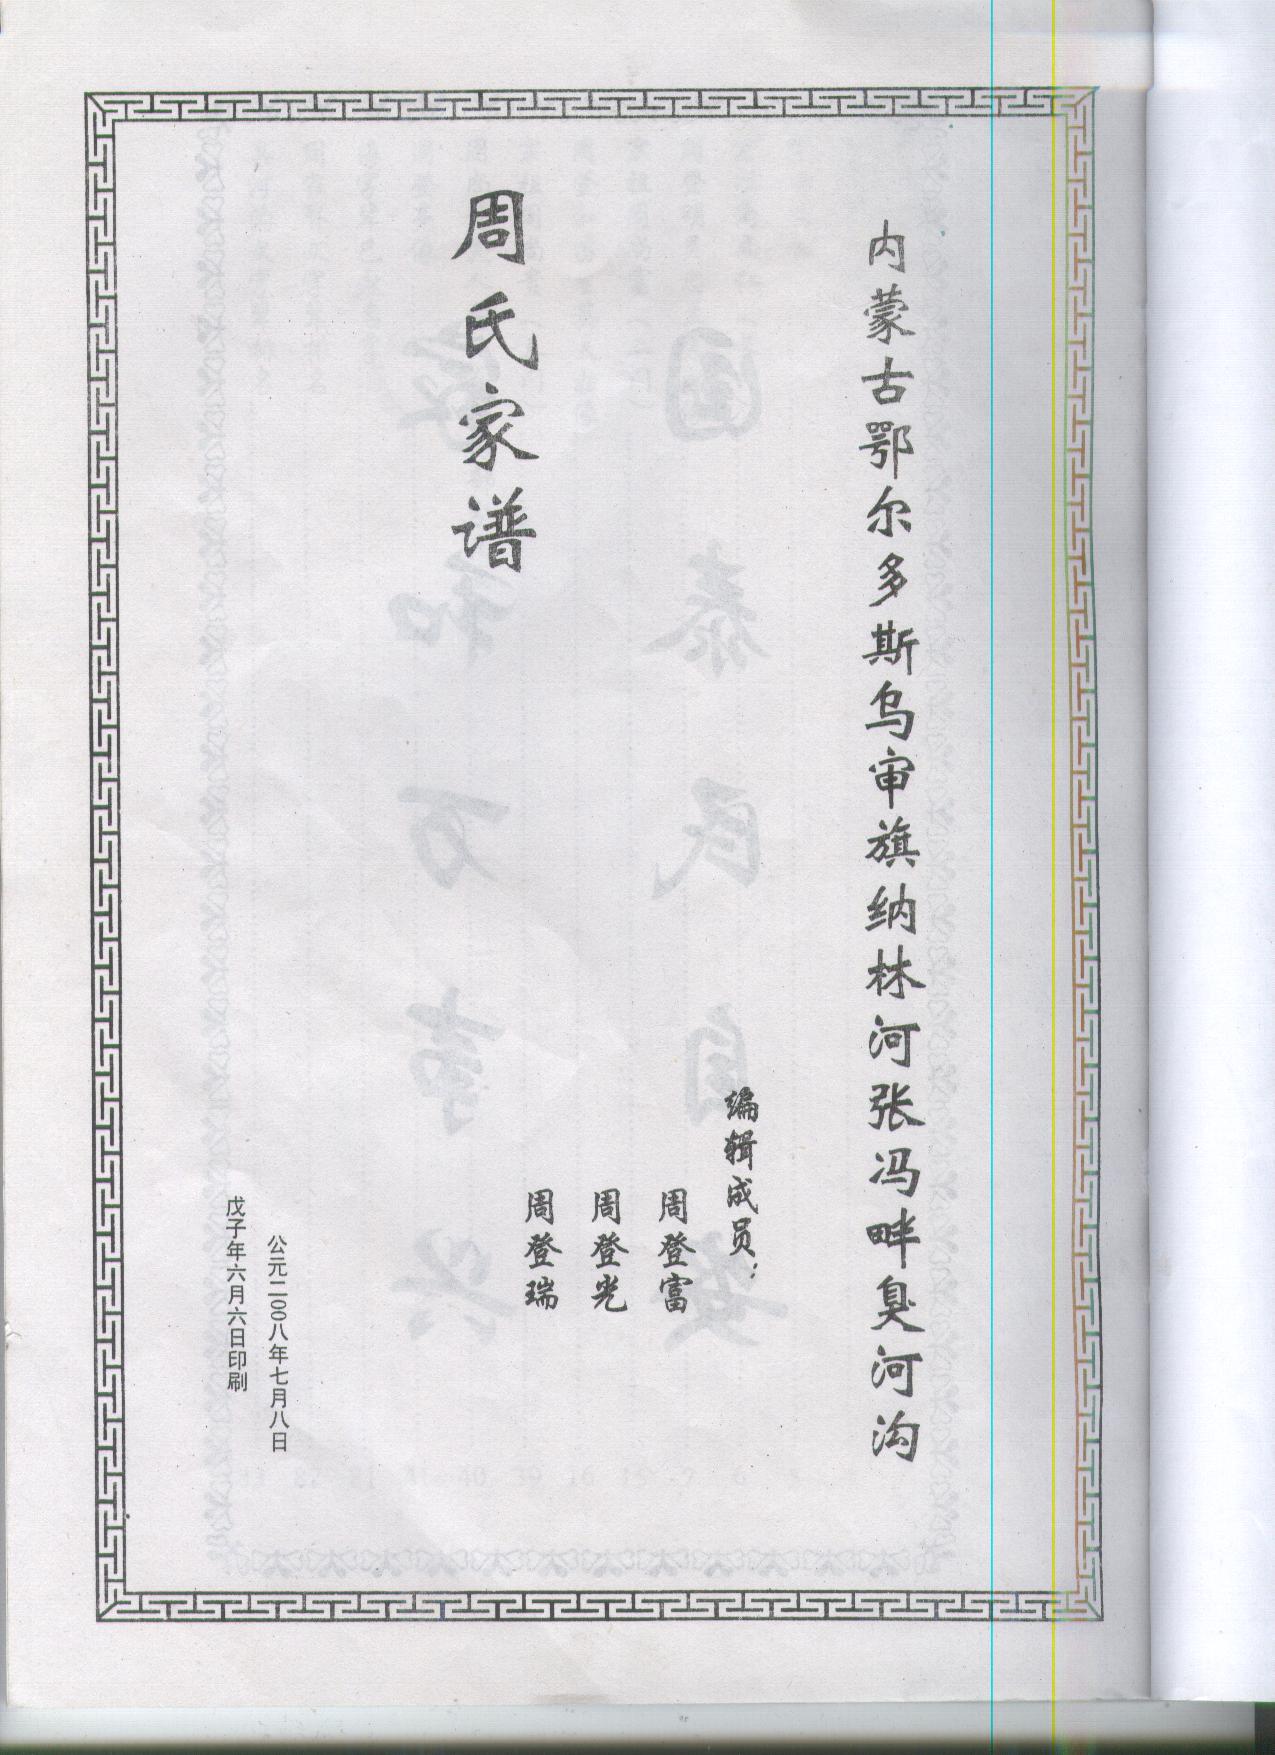 内蒙古鄂尔多斯乌审旗纳林河张冯畔臭河沟
编辑成员：
周登富
周登光
周登瑞
周氏家谱
公元二00八年七月八日
戊子年六月六日印刷